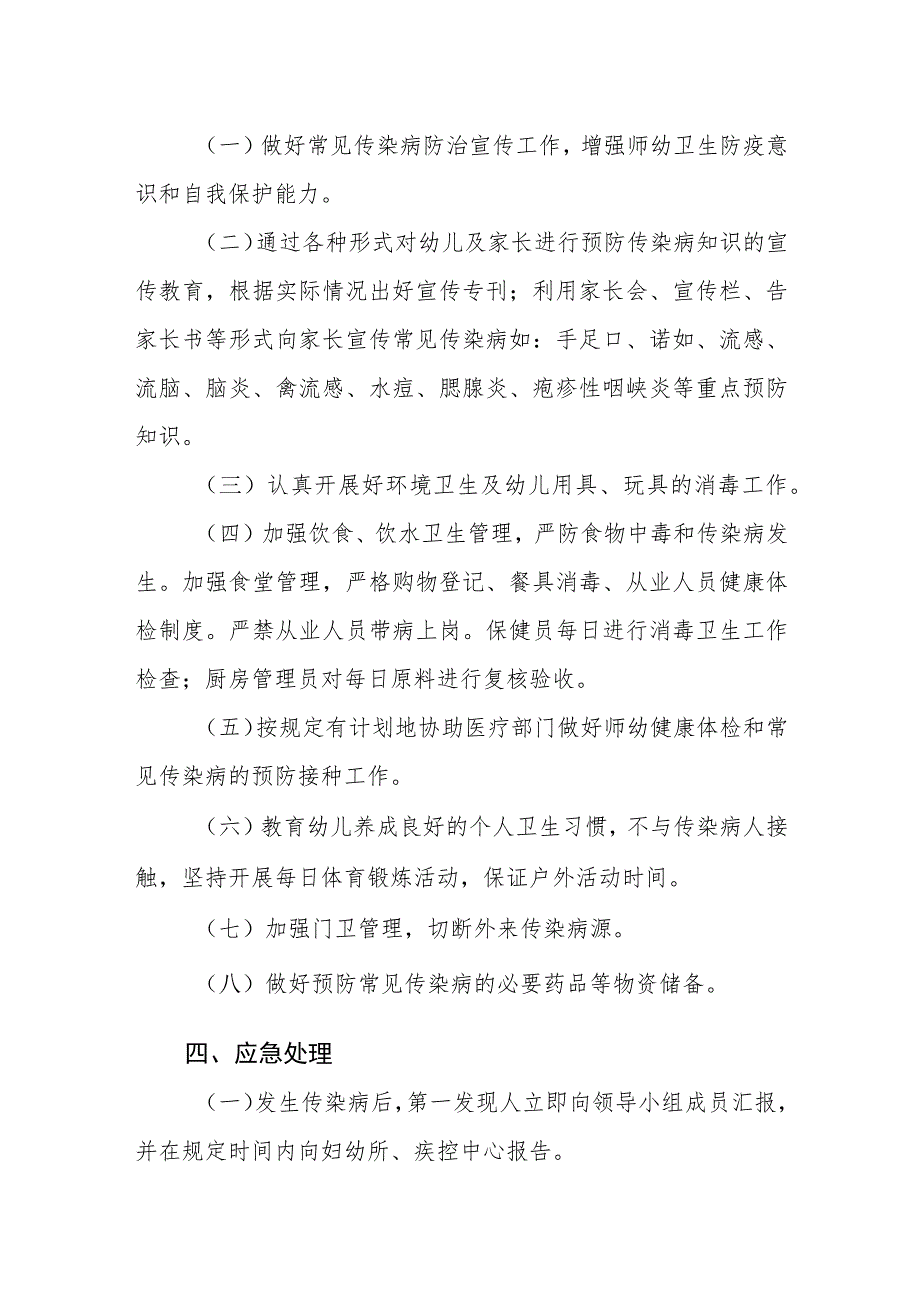 （一）做好常见传染病防治宣传工作，增强师幼卫生防疫意
识和自我保护能力。
（二）通过各种形式对幼儿及家长进行预防传染病知识的宣
传教育，根据实际情况出好宣传专刊；利用家长会、宣传栏、告
家长书等形式向家长宣传常见传染病如：手足口、诺如、流感、
流脑、脑炎、禽流感、水痘、腮腺炎、疱疹性咽峡炎等重点预防
知识。
（三）认真开展好环境卫生及幼儿用具、玩具的消毒工作。
（四）加强饮食、饮水卫生管理，严防食物中毒和传染病发
生。加强食堂管理，严格购物登记、餐具消毒、从业人员健康体
检制度。严禁从业人员带病上岗。保健员每日进行消毒卫生工作
检查；厨房管理员对每日原料进行复核验收。
（五）按规定有计划地协助医疗部门做好师幼健康体检和常
见传染病的预防接种工作。
（六）教育幼儿养成良好的个人卫生习惯，不与传染病人接
触，坚持开展每日体育锻炼活动，保证户外活动时间。
（七）加强门卫管理，切断外来传染病源。
（八）做好预防常见传染病的必要药品等物资储备。
四、应急处理
（一）发生传染病后，第一发现人立即向领导小组成员汇报，
并在规定时间内向妇幼所、疾控中心报告。